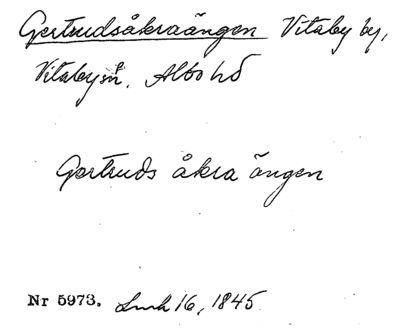 Gertrudsåkraängen Vitaby by,
Vitaby sn. Albo hd
Gertruds åkra ängen
Nr 5973. Lmk 16, 1845